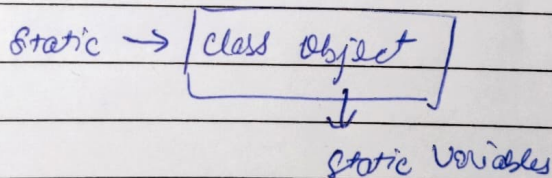 static → class object
↓
static variables